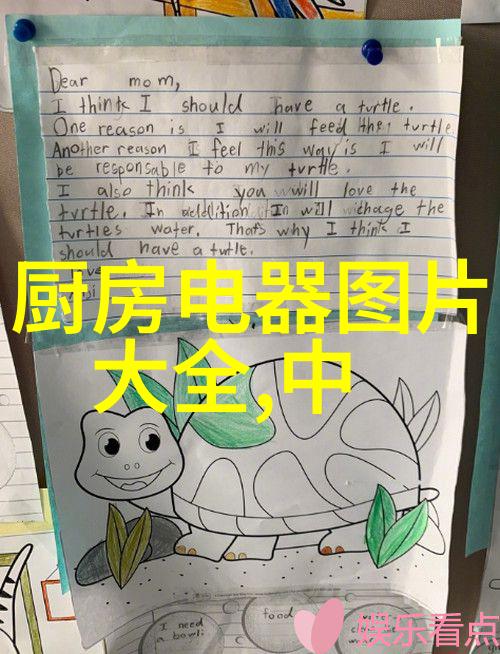 Dear mom,
I think I should have a turtle.
One reason is I will feed the turtle.
Another reason I feel this way is I will
be responsable to my turtle.
I also think you will love the
turtle. In addition I will chage the
turtles water. Thats why I think I
should have a turtle.
厨房电器图片
大全,中
I need
a bowl
food
娱乐看点